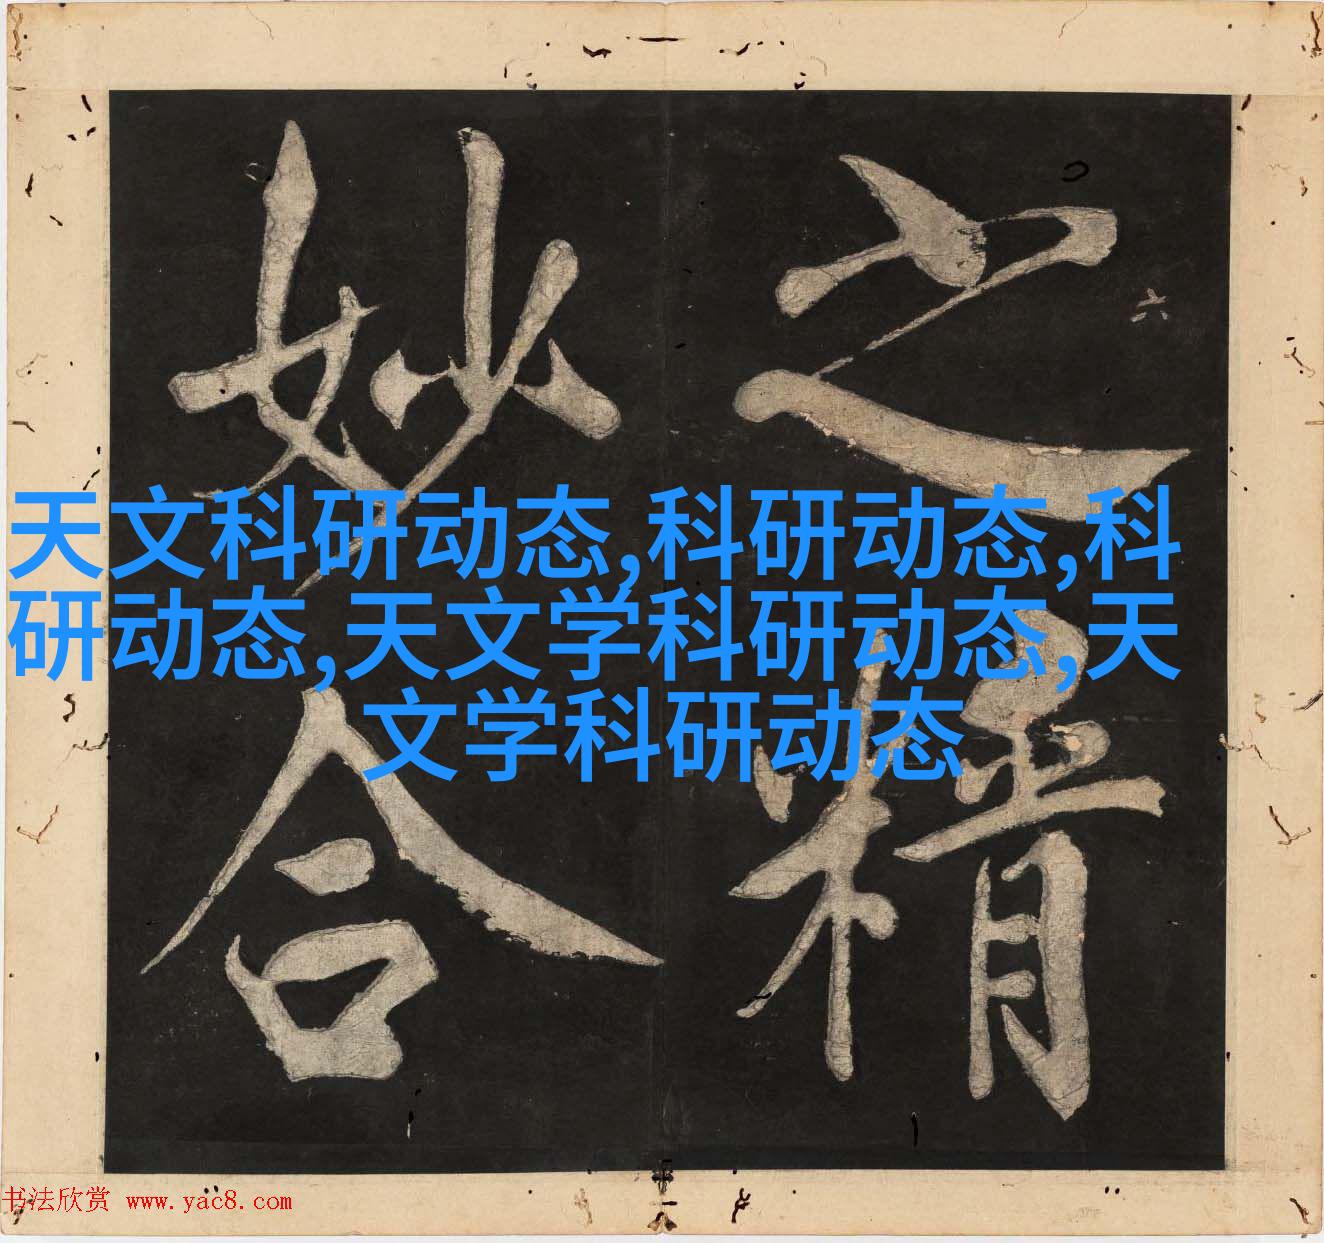 之精
妙合
六
天文科研动态,科研动态,科
研动态,天文学科研动态,天
文学科研动态
书法欣赏 www.yac8.com